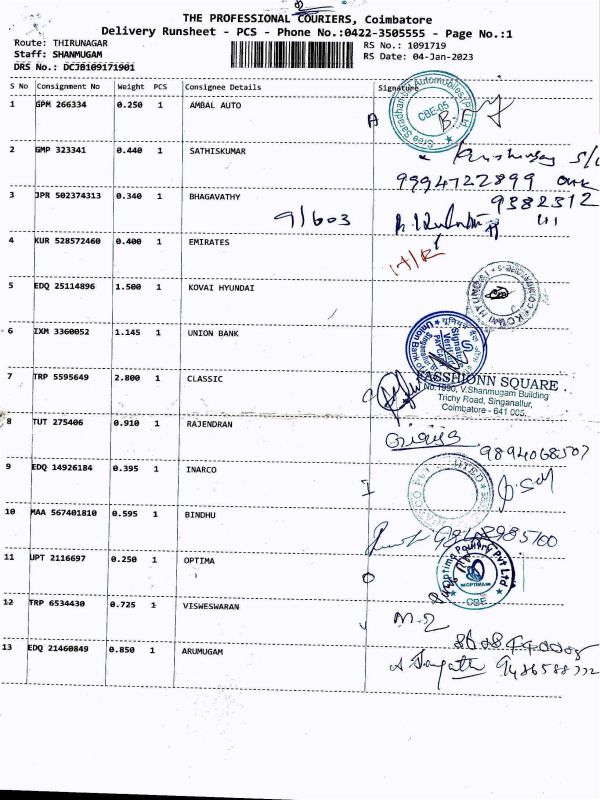 THE PROFESSIONAL COURIERS, Coimbatore
Delivery Runsheet - PCS - Phone No.:0422-3505555 - Page No.:1
Route: THIRUNAGAR
RS No.: 1091719
Staff: SHANMUGAM
RS Date: 04-Jan-2023
DRS No.: DCJB109171901
S No Consignment No Weight PCS Consignee Details Signature
1 GPM 266334 0.250 1 AMBAL AUTO
CBE-05
2 GMP 323341 0.440 1 SATHISKUMAR
9994722899
3 JPR 502374313 0.340 1 BHAGAVATHY
9382312
91603
4 KUR 528572460 0.400 1 EMIRATES
5 EDQ 25114896 1.500 1 KOVAI HYUNDAI
6 IXM 3360052 1.145 1 UNION BANK
Union Bank
7 TRP 5595649 2.800 1 CLASSIC
FASSHIONN SQUARE
No.1990, V.Shanmugam Building
Trichy Road, Singanallur,
Coimbatore - 641 005.
8 TUT 275406 0.910 1 RAJENDRAN
9894068507
9 EDQ 14926184 0.395 1 INARCO
10 MAA 567401810 0.595 1 BINDHU
11 UPT 2116697 0.250 1 OPTIMA
Optima Poultry Pvt Ltd
OPTIMA
CBE
12 TRP 6534430 0.725 1 VISWESWARAN
13 EDQ 21460849 0.850 1 ARUMUGAM